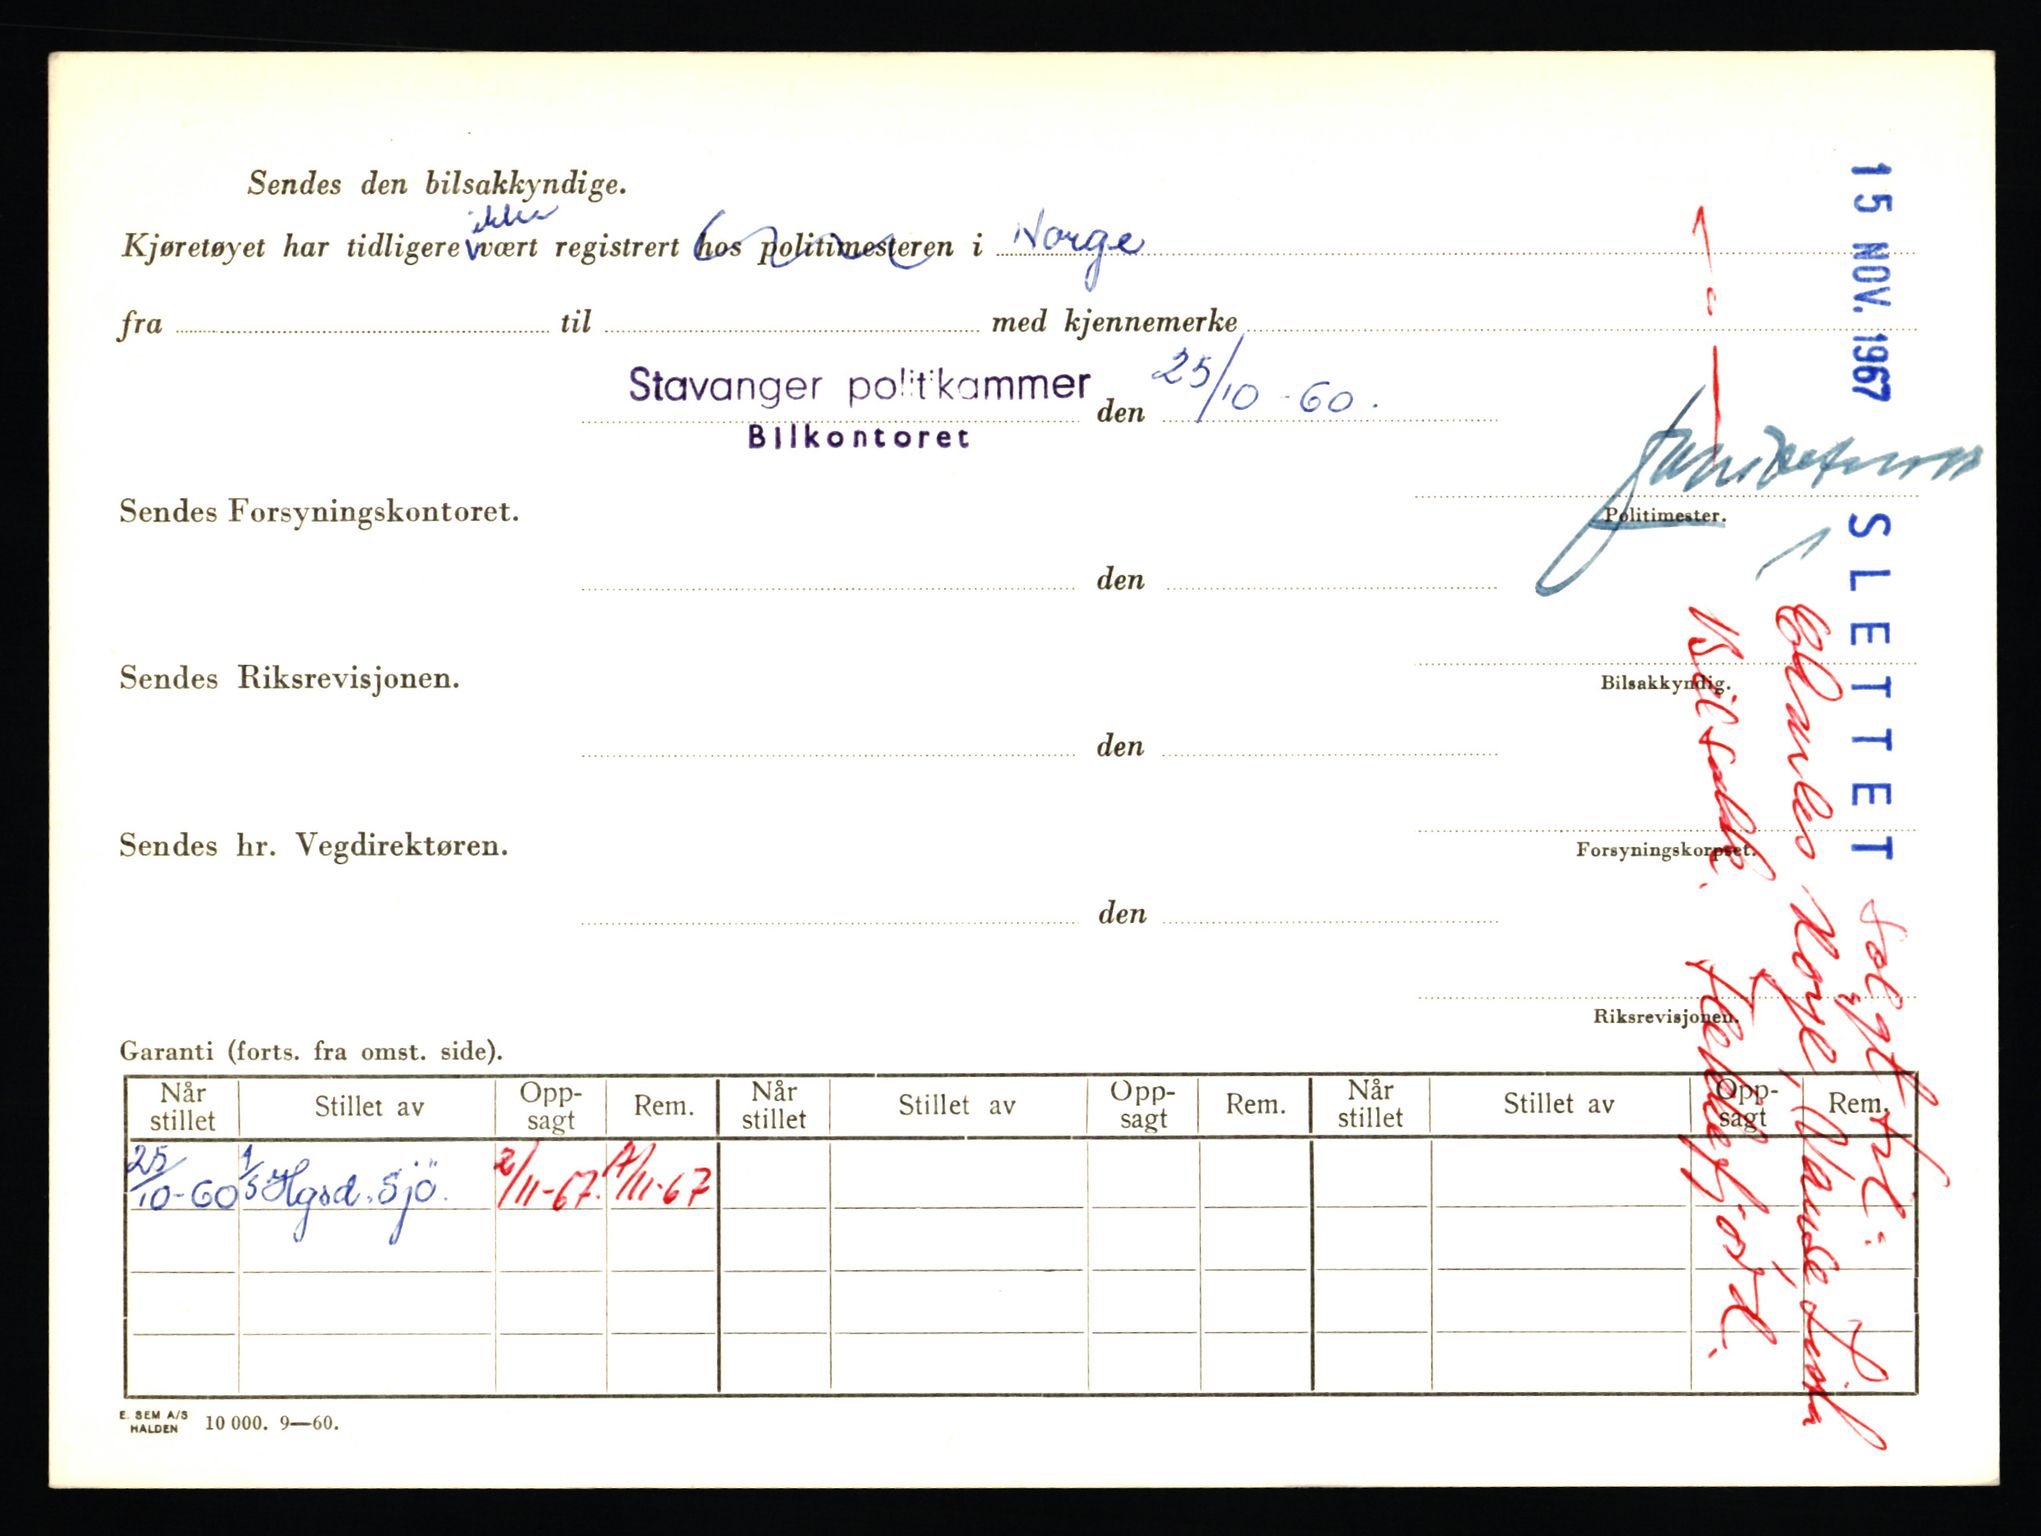 Sendes den bilsakkyndige.
ikke
Kjøretøyet har tidligere vært registrert hos politimesteren i Norge
fra til med kjennemerke
Stavanger politikammer den 25/10-60.
Bilkontoret
Sendes Forsyningskontoret.
Politimester.
den
Sendes Riksrevisjonen.
Bilsakkyndig.
den
Sendes hr. Vegdirektøren.
Forsyningskorpset.
den
Riksrevisjonen.
Garanti (forts. fra omst. side).
Når stillet Stillet av Opp-sagt Rem. Når stillet Stillet av Opp-sagt Rem. Når stillet Stillet av Opp-sagt Rem.
25/10-60 1/5 Hgsd. Sjö. 2/11-67. 14/11-67
E. SEM A/S
HALDEN
10 000. 9—60.
15 NOV. 1967 SLETTET
Solgt til:
Bilsakk. Flekkefjord.